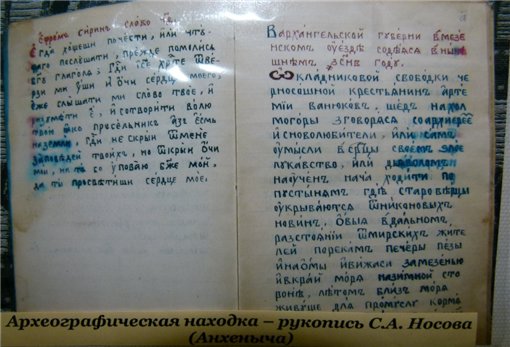 Ефрѣмъ сиринъ слово
Егда хощеши почести, или чтѣ-
щаго послѹшати, прежде помолись
бгѹ глаголѧ: гди ісе хрте ѿве-
рзи ми ѹши и очи сердца моего,
еже слышати ми слово твое, и
разѹмѣти е, и сотворити волю
твою ꙗко пришелникъ азъ есмь
на земли, гди не скрыи ѿ мене
заповѣдей твоихъ, но ѿкрыи очи
мои, на тѧ бо ѹповаю бже мой.
да ты просвѣтиши сердце мое.
Въ архангелской губерни въ мѣзе
нскомъ оуѣздѣ содѣѧсѧ въ ны
шнемъ году.
Ѡкладниковой свободки че
рносошной крестьѧнинъ арте
мій ванюковъ, шедъ на хол
могоры зговорасѧ со архиереѥ
и сноволюбители, или самъ
оумысли въ срцы своемъ злое
лукавство, или дьѧволомъ
наоученъ нача ходити по
пѹстынѧмъ гдѣ староверцы
оукрываютсѧ ѿ никоновыхъ
новинъ, ѡвыѧ въ далномъ
разстоѧніи ѿ мирскихъ жите
лей порекамъ печеры пезы
и на омы и въ ижасѧ за мезенью
и в край морѧ на зимной сто
ронѣ, лѣтомъ близъ морѧ
живѹще длѧ промыслу кормо
Археографическая находка – рукопись С.А. Носова
(Анхеныча)